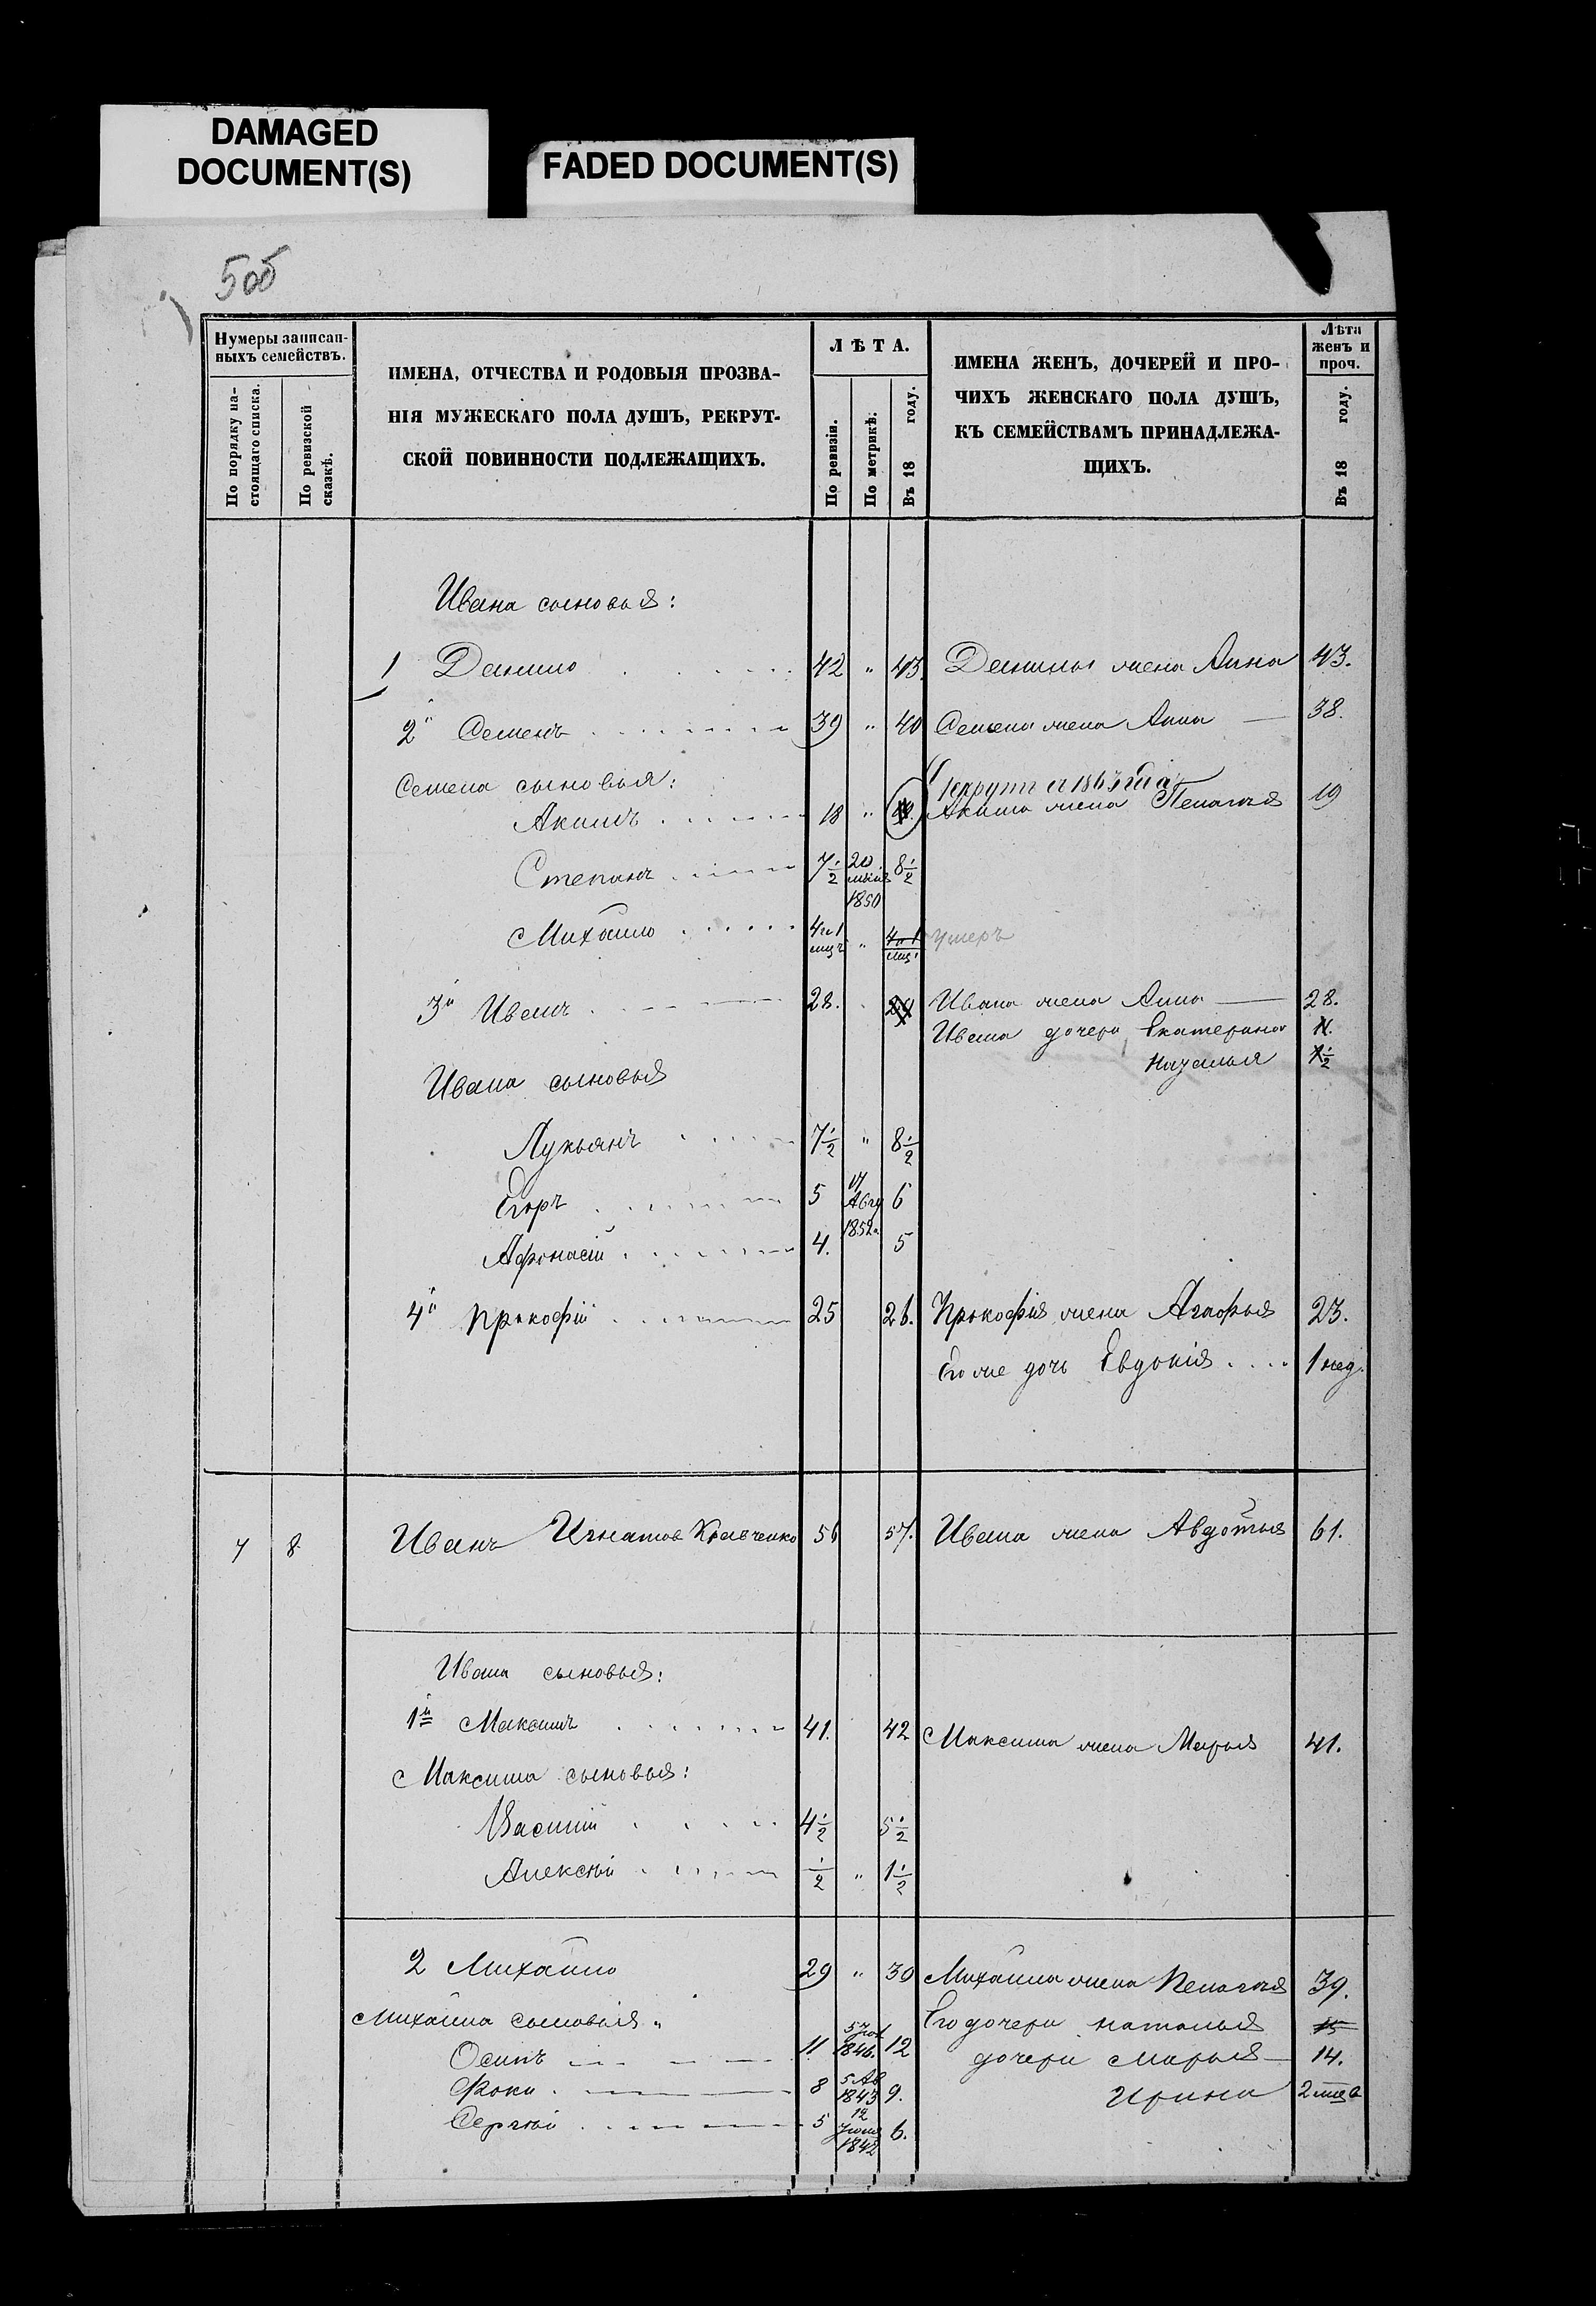 DAMAGED
DOCUMENT(S)
FADED DOCUMENT(S)
5об
Нумеры записан-
ныхъ семействъ.
По порядку на-
стоящаго списка.
По ревизской
сказкѣ.
ИМЕНА, ОТЧЕСТВА И РОДОВЫЯ ПРОЗВА-
НІЯ МУЖЕСКАГО ПОЛА ДУШЪ, РЕКРУТ-
СКОЙ ПОВИННОСТИ ПОДЛЕЖАЩИХЪ.
ЛѢТА.
По ревизіи.
По метрикѣ.
Въ 18 году.
ИМЕНА ЖЕНЪ, ДОЧЕРЕЙ И ПРО-
ЧИХЪ ЖЕНСКАГО ПОЛА ДУШЪ,
КЪ СЕМЕЙСТВАМЪ ПРИНАДЛЕЖА-
ЩИХЪ.
Лѣта
женъ и
проч.
Въ 18 году.
Ивана сыновья:
1 Данило 42 " 43. Данилы жена Анна 43.
2й Семенъ 39 " 40 Семена жена Анна 38.
Семена сыновья:
рекрутъ съ 1863 года
Акимъ 18 " Акима жена Пелагея 19
Степанъ 7½ 20 1850 8½
Михайло 4 и 1 мѣц " 4 и 1 мѣц умеръ
3й Иванъ 28. Ивана жена Анна 28.
Ивана дочери Екатерина
Наталья
Ивана сыновья
Лукьянъ 7½ " 8½
Егоръ 5 17 Авгу 1852. 6
Афонасій 4. 5
4й Прокофій 25 26. Прокофія жена Агафья 23.
Его же дочь Евдокія 1 нед.
7 8 Иванъ Игнатов Кравченко 56 57. Ивана жена Авдотья 61.
Ивана сыновья:
1й Максимъ 41. 42 Максима жена Марья 41.
Максима сыновья:
Василій 4½ 5½
Алексѣй ½ " 1½
2 Михайло 29 " 30 Михайла жена Пелагея 39.
Михайла сыновья "
Его дочери Наталья 15
Осипъ 11 5 1846. 12 дочери Марья 14.
Фока 8 5 Ав 1843 9. Ирина 2
Сергѣй 5 12 Іюня 1842 6.